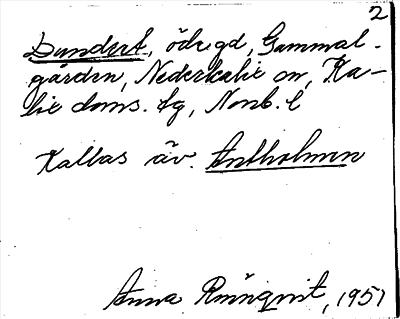 2
Dundert, ödegd, Gammal-
gården, Nederkalix sn, Ka-
lix doms. tg, Nonb. l
Kallas äv. Antholmen
Anna Rönnqvist, 1951